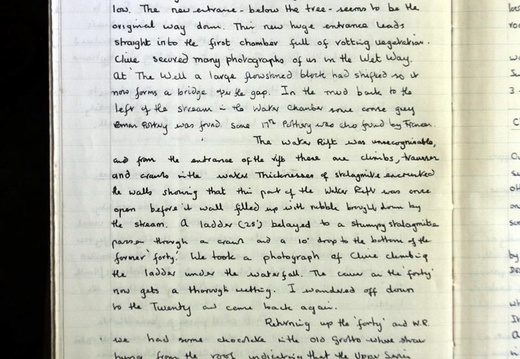 low. The new entrance - below the tree - seems to be the
original way down. This new huge entrance leads
straight into the first chamber full of rotting vegetation.
Clive secured many photographs of us in the Wet Way.
At The Well a large flowstoned block had shifted so it
now forms a bridge over the gap. In the mud back to the
left of the stream in the Water Chamber some coarse grey
Roman Pottery was found. Some 17th Pottery was also found by
The Water Rift was unrecognisable,
and from the entrance of the rift there are climbs, traverses
and crawls in the water. Thicknesses of stalagmite encrusted
the walls showing that this part of the Water Rift was once
open before it wall filled up with rubble brought down by
the stream. A ladder (25') belayed to a stumpy stalagmite
passes through a crawl and a 10' drop to the bottom of the
former 'forty'. We took a photograph of Clive climbing
the ladder under the waterfall. The caver on the 'forty'
now gets a thorough wetting. I wandered off down
to the Twenty and came back again.
Returning up the 'forty' and W.R.
we had some chocolate in the Old Grotto where straw
hung from the roof indicating that the Upper Series